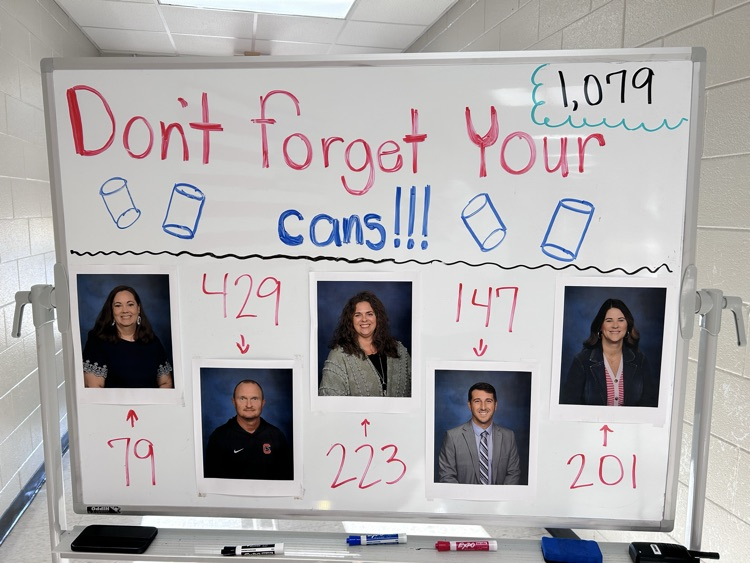 1,079
Don't forget Your
cans!!!
429
147
79
223
201
HIPPO
EXPO